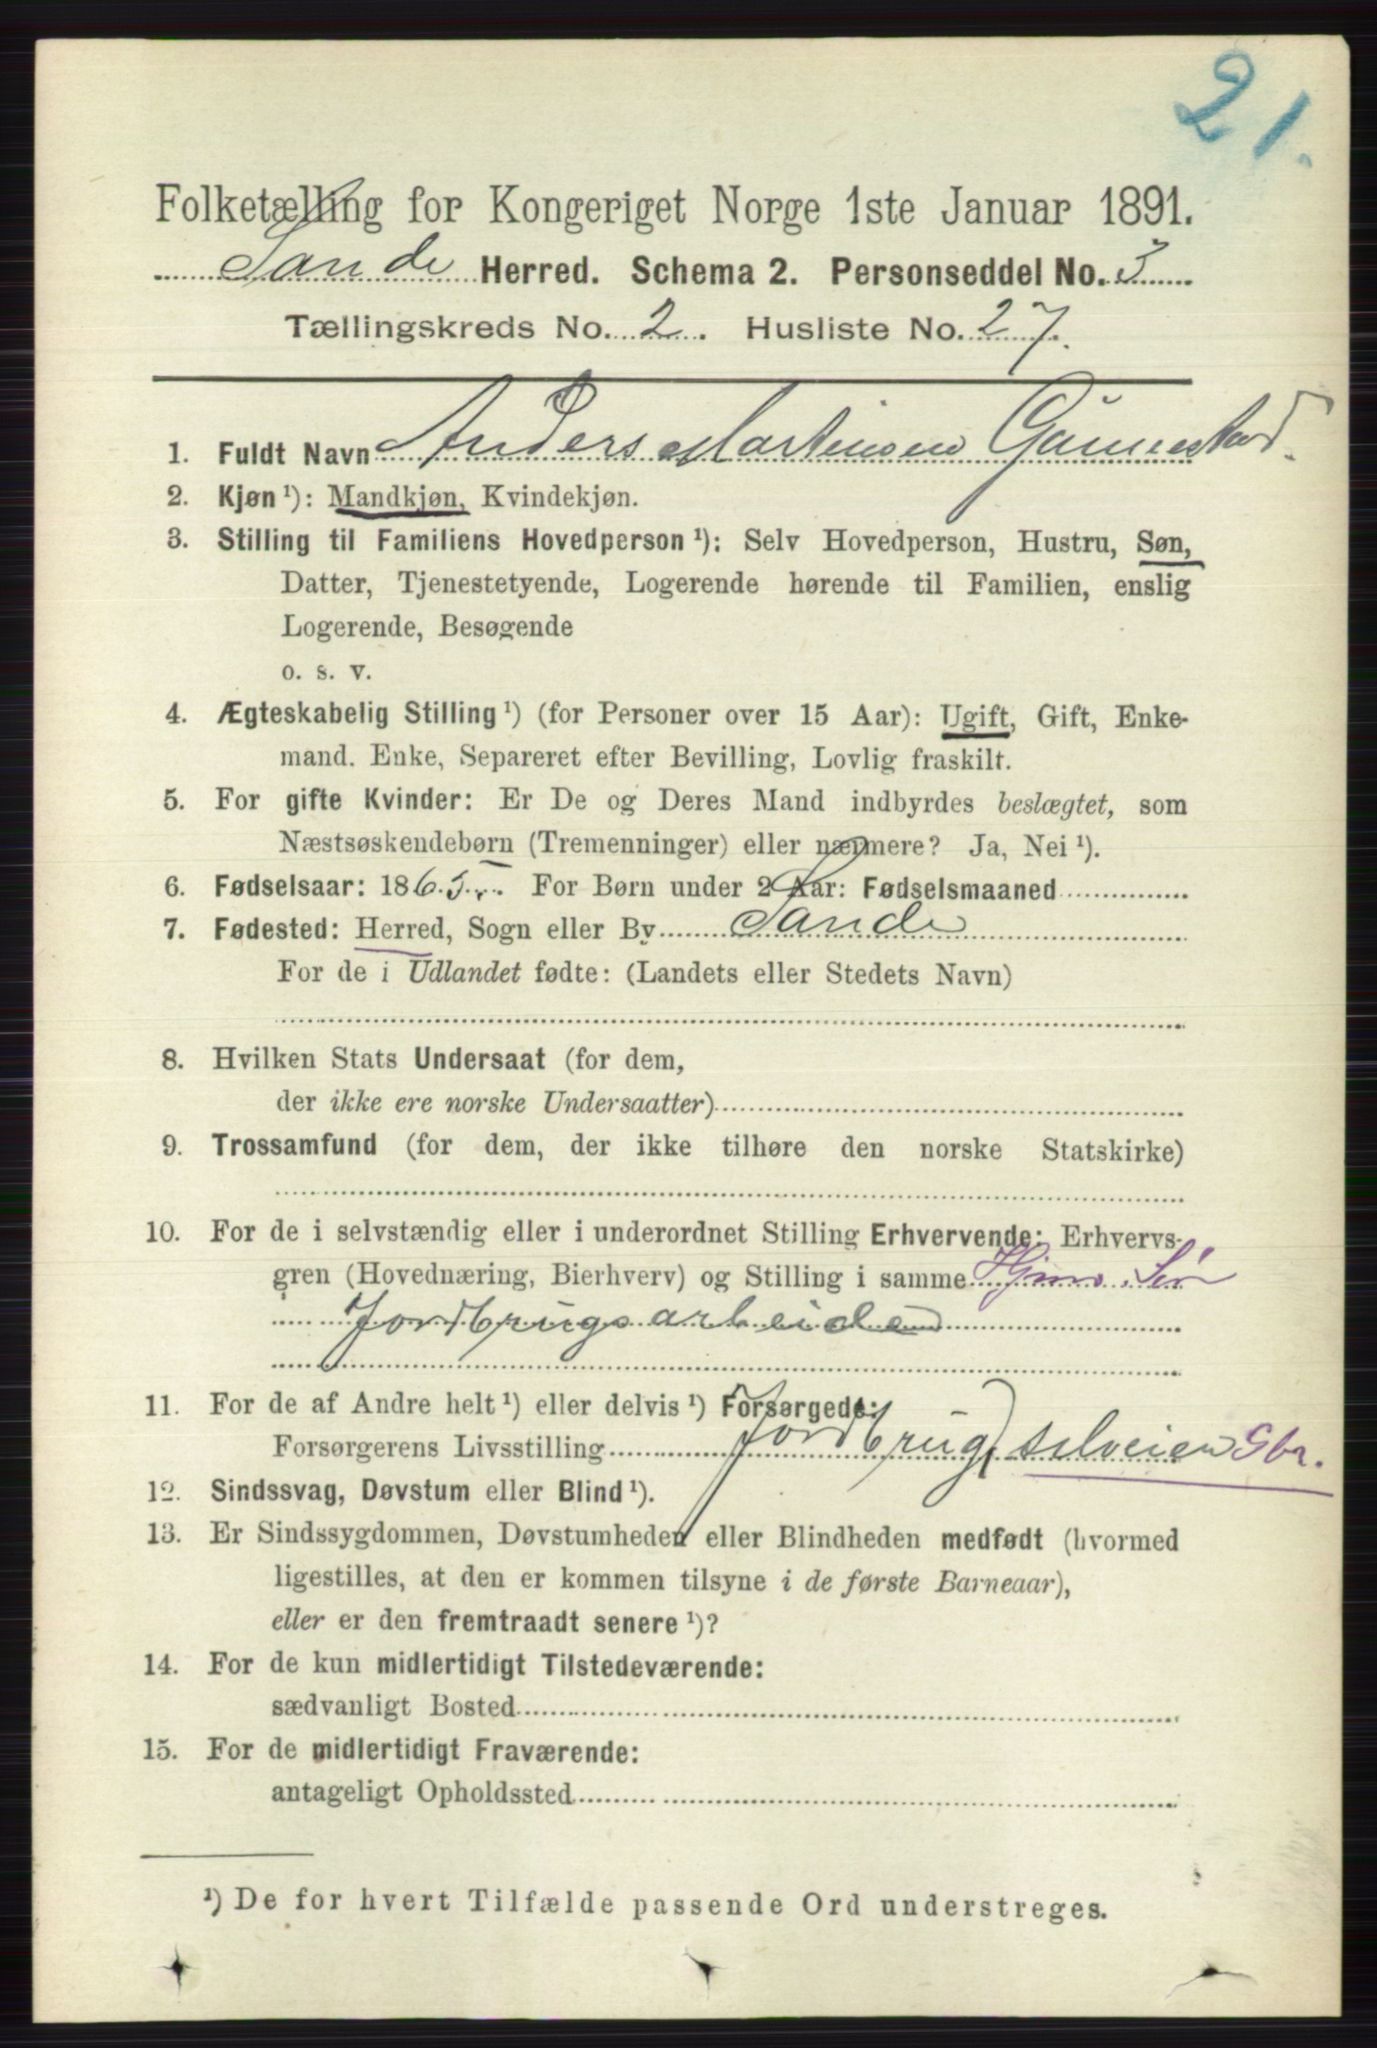 21.
Folketælling for Kongeriget Norge 1ste Januar 1891.
Sande Herred. Schema 2. Personseddel No. 3
Tællingskreds No. 2. Husliste No. 27.
1. Fuldt Navn Anders Martinsen
2. Kjøn ¹): Mandkjøn, Kvindekjøn.
3. Stilling til Familiens Hovedperson ¹): Selv Hovedperson, Hustru, Søn,
Datter, Tjenestetyende, Logerende hørende til Familien, enslig
Logerende, Besøgende
o. s. v.
4. Ægteskabelig Stilling ¹) (for Personer over 15 Aar): Ugift, Gift, Enke-
mand. Enke, Separeret efter Bevilling, Lovlig fraskilt.
5. For gifte Kvinder: Er De og Deres Mand indbyrdes beslægtet, som
Næstsøskendebørn (Tremenninger) eller nærmere? Ja, Nei ¹).
6. Fødselsaar: 1865. For Børn under 2 Aar: Fødselsmaaned
7. Fødested: Herred, Sogn eller By Sande
For de i Udlandet fødte: (Landets eller Stedets Navn)
8. Hvilken Stats Undersaat (for dem,
der ikke ere norske Undersaatter)
9. Trossamfund (for dem, der ikke tilhøre den norske Statskirke)
10. For de i selvstændig eller i underordnet Stilling Erhvervende: Erhvervs-
gren (Hovednæring, Bierhverv) og Stilling i samme Hjmv. Søn
Jordbrugsarbeiden
11. For de af Andre helt ¹) eller delvis ¹) Forsørgede:
Forsørgerens Livsstilling Jordbrug, selveien Gbr.
12. Sindssvag, Døvstum eller Blind ¹).
13. Er Sindssygdommen, Døvstumheden eller Blindheden medfødt (hvormed
ligestilles, at den er kommen tilsyne i de første Barneaar),
eller er den fremtraadt senere ¹)?
14. For de kun midlertidigt Tilstedeværende:
sædvanligt Bosted
15. For de midlertidigt Fraværende:
antageligt Opholdssted
¹) De for hvert Tilfælde passende Ord understreges.